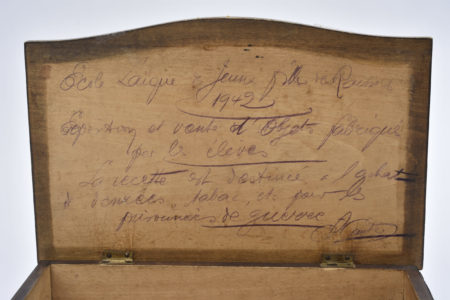 École Laïque de Jeunes filles de
1942
Exposition et vente d'Objets fabriqués
par les élèves
La recette est destinée à l'achat
de denrées, tabac, etc pour les
prisonniers de guerre